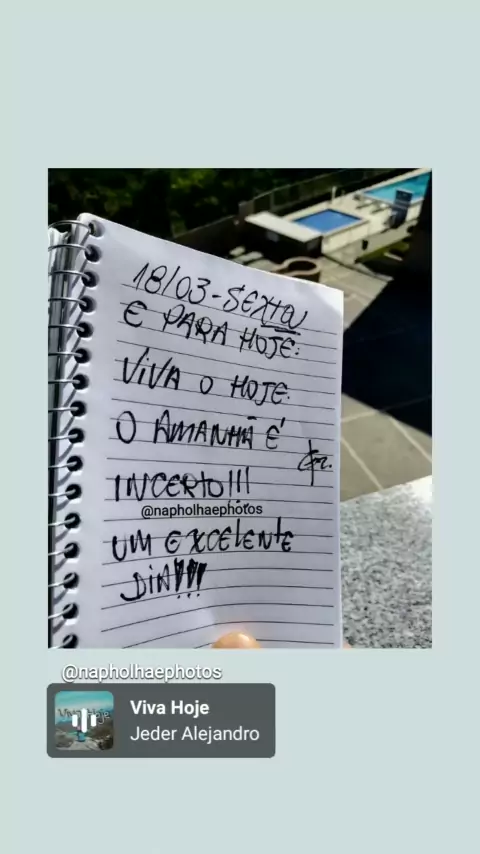 18/03-SEXTOU
E PARA HOJE:
VIVA O HOJE.
O AMANHÃ É
INCERTO!!!
@napholhaephotos
UM EXCELENTE
DIA!!!
@napholhaephotos
Viva Hoje
Jeder Alejandro